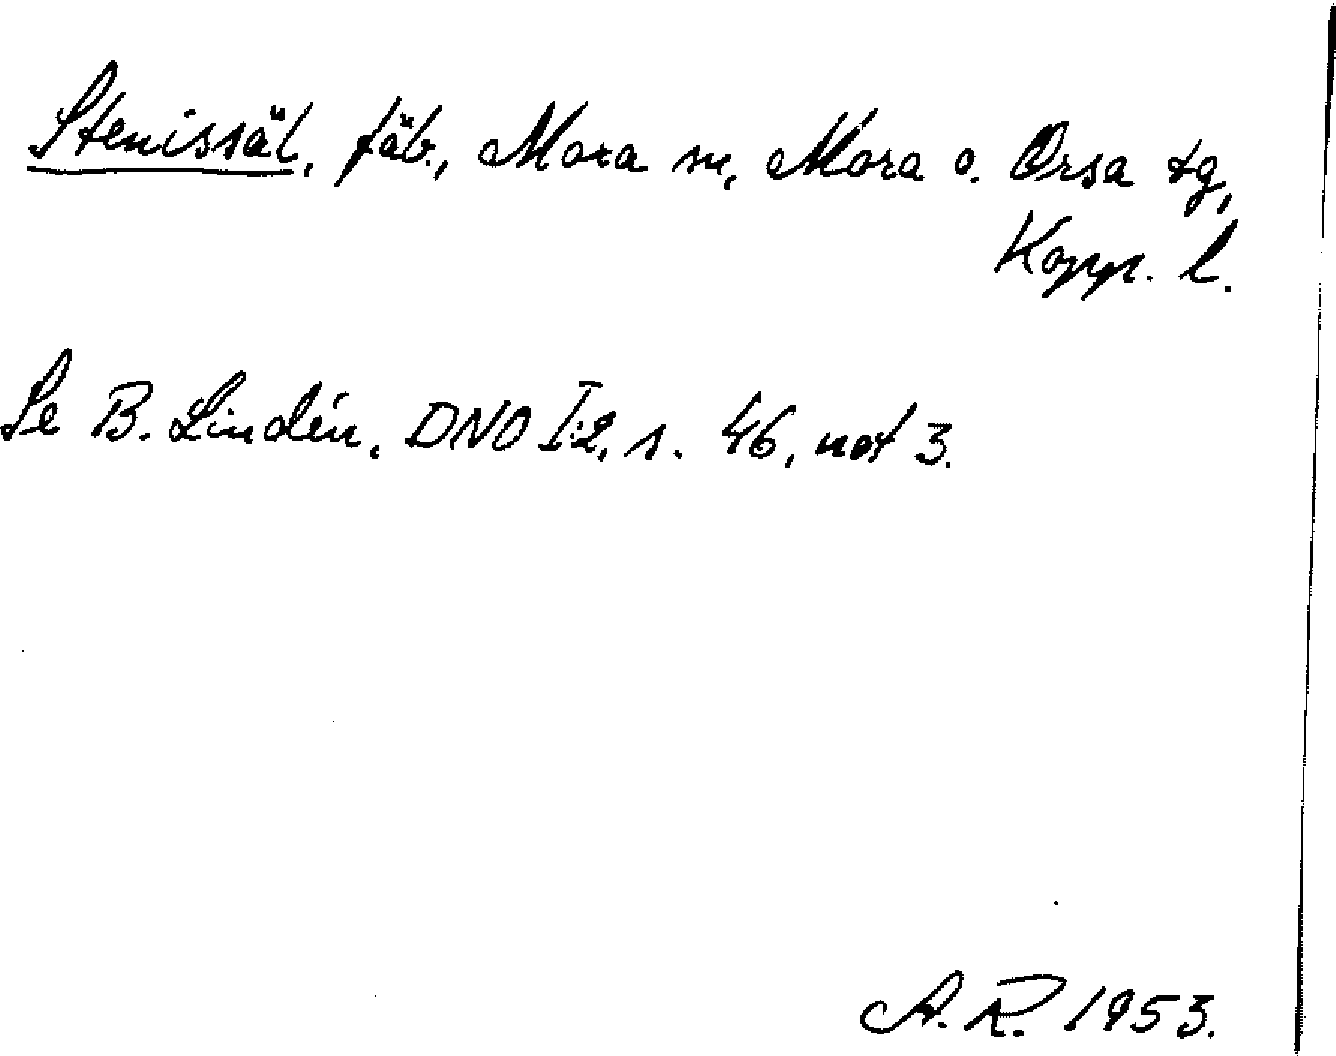 Stenissäl, fäb., Mora sn, Mora o. Orsa tg,
Kopp. l.
Se B. Lindén, DNO I:2, s. 46, not 3.
A. R. 1953.